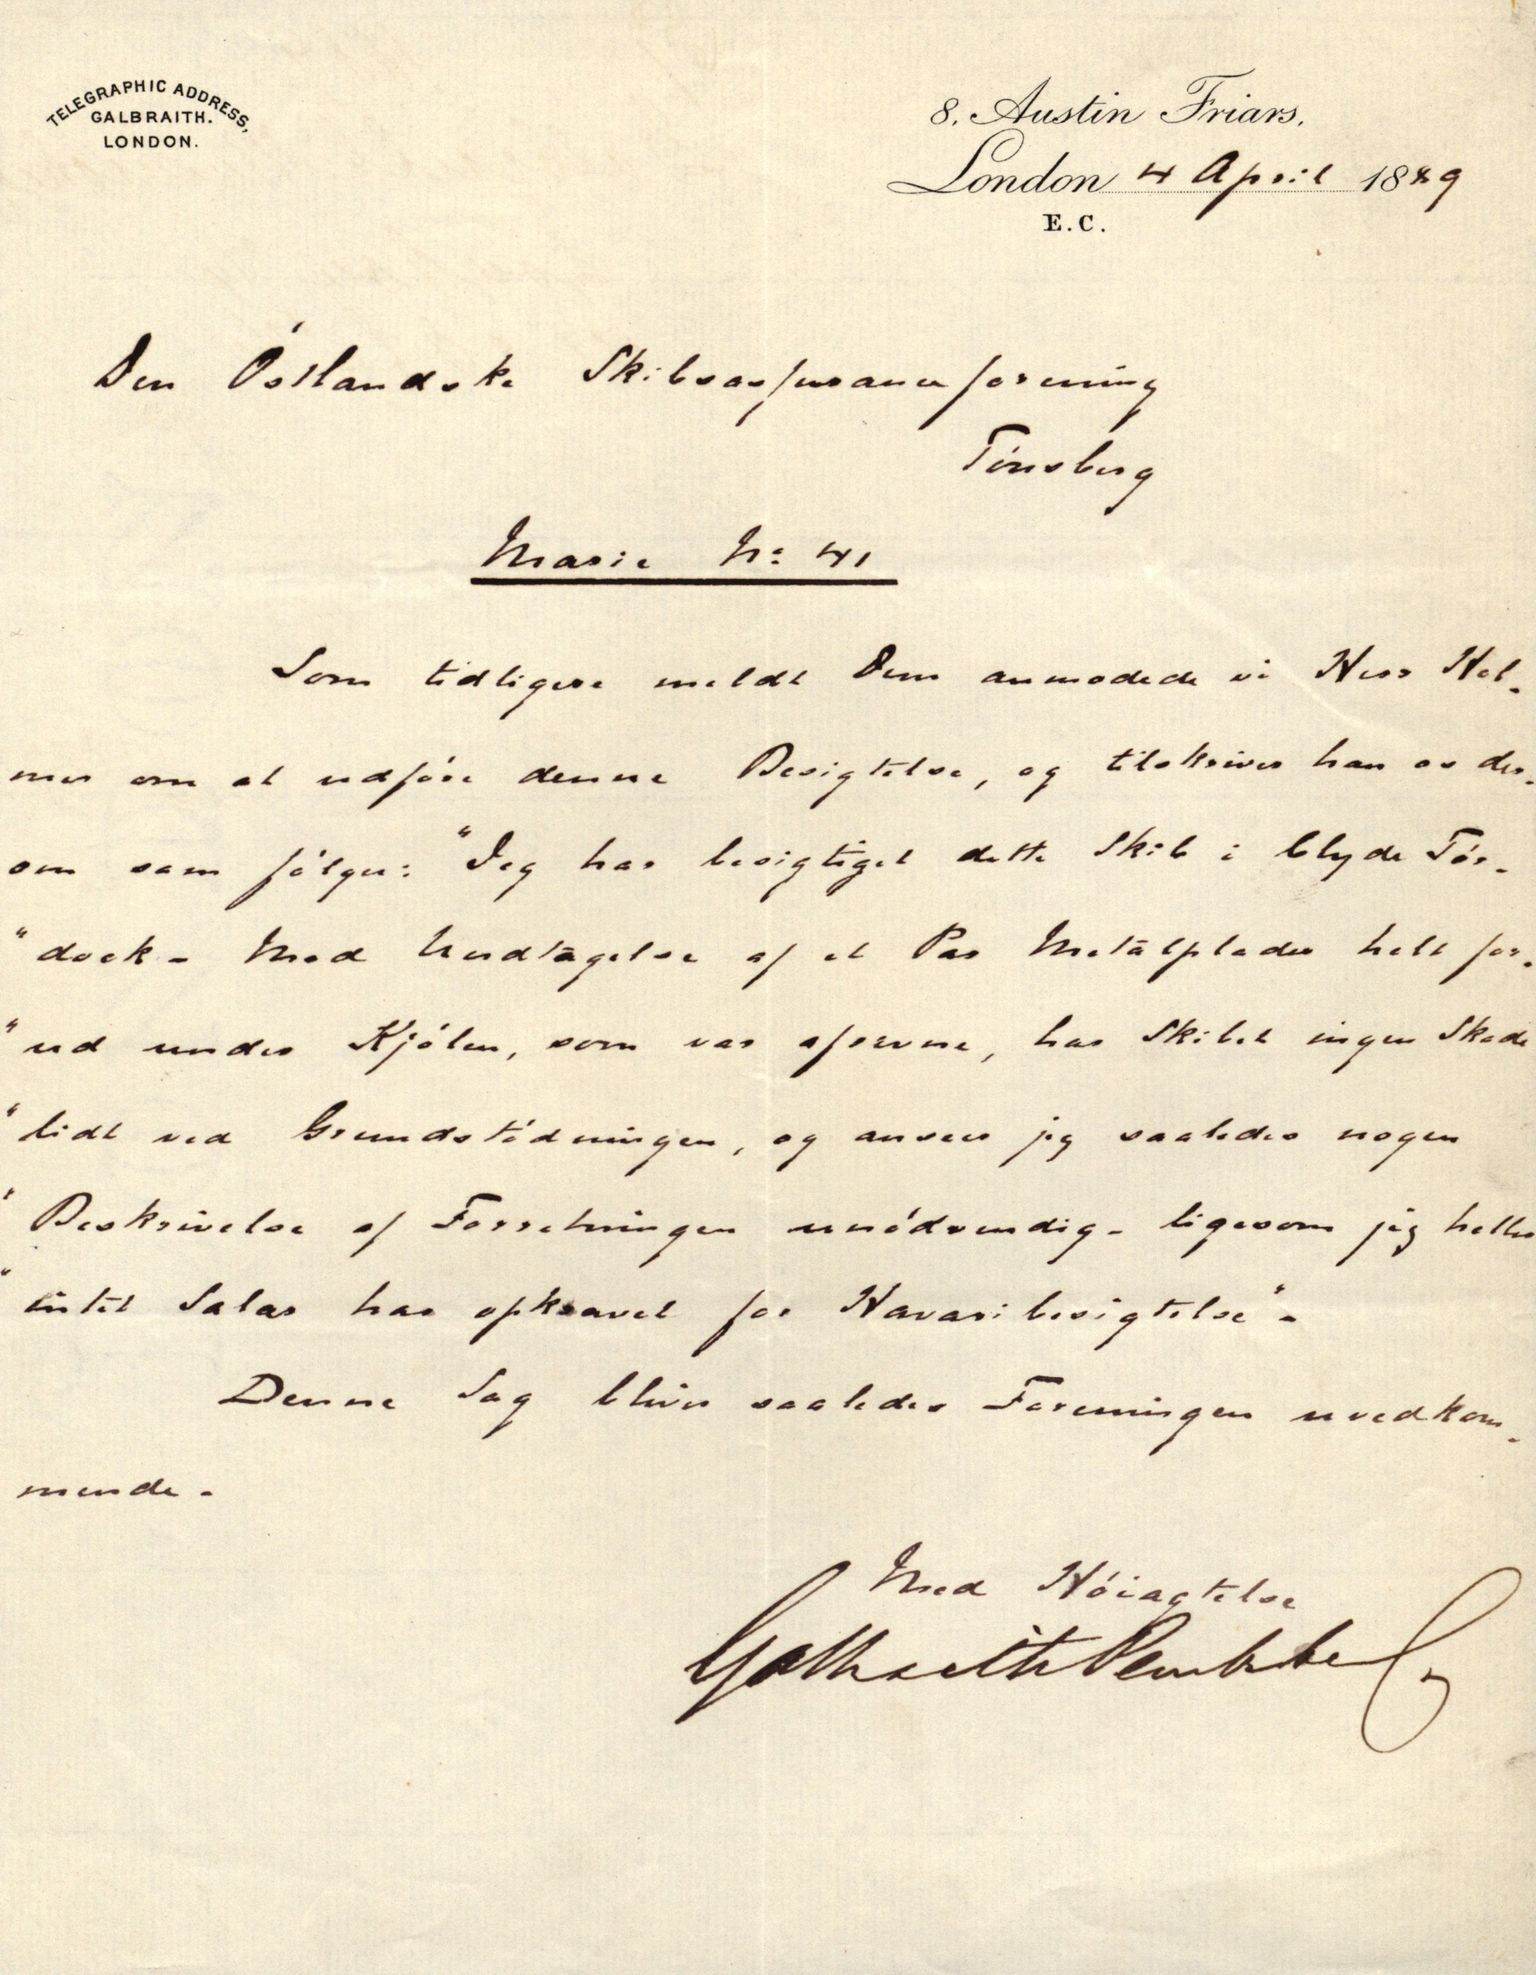 TELEGRAPHIC ADDRESS,
GALBRAITH.
LONDON.
8, Austin Friars,
London 4 April 1889
E.C.
Den Östlandske Skibsassuranceforening
Tönsberg
Marie No 41
Som tidligere meldt Dem anmodede vi Herr Hol-
mer om at udföre denne Besigtelse, og tilskriver han os der-
om som fölger: "Jeg har besigtiget dette Skib i Clyde Tör-
"dock - Med Undtagelse af et Par Metalplader helt for-
"ud under Kjölen, som var afrevne, har Skibet ingen Skade
"lidt ved Grundstödningen, og anseer jeg saaledes nogen
"Beskrivelse af Forretningen unödvendig - ligesom jeg heller
"intet Salar har opkrævet for Havaribesigtelse" -
Denne Sag bliver saaledes Foreningen uvedkom-
mende -
Med Höiagtelse
Galbraith Pembroke &